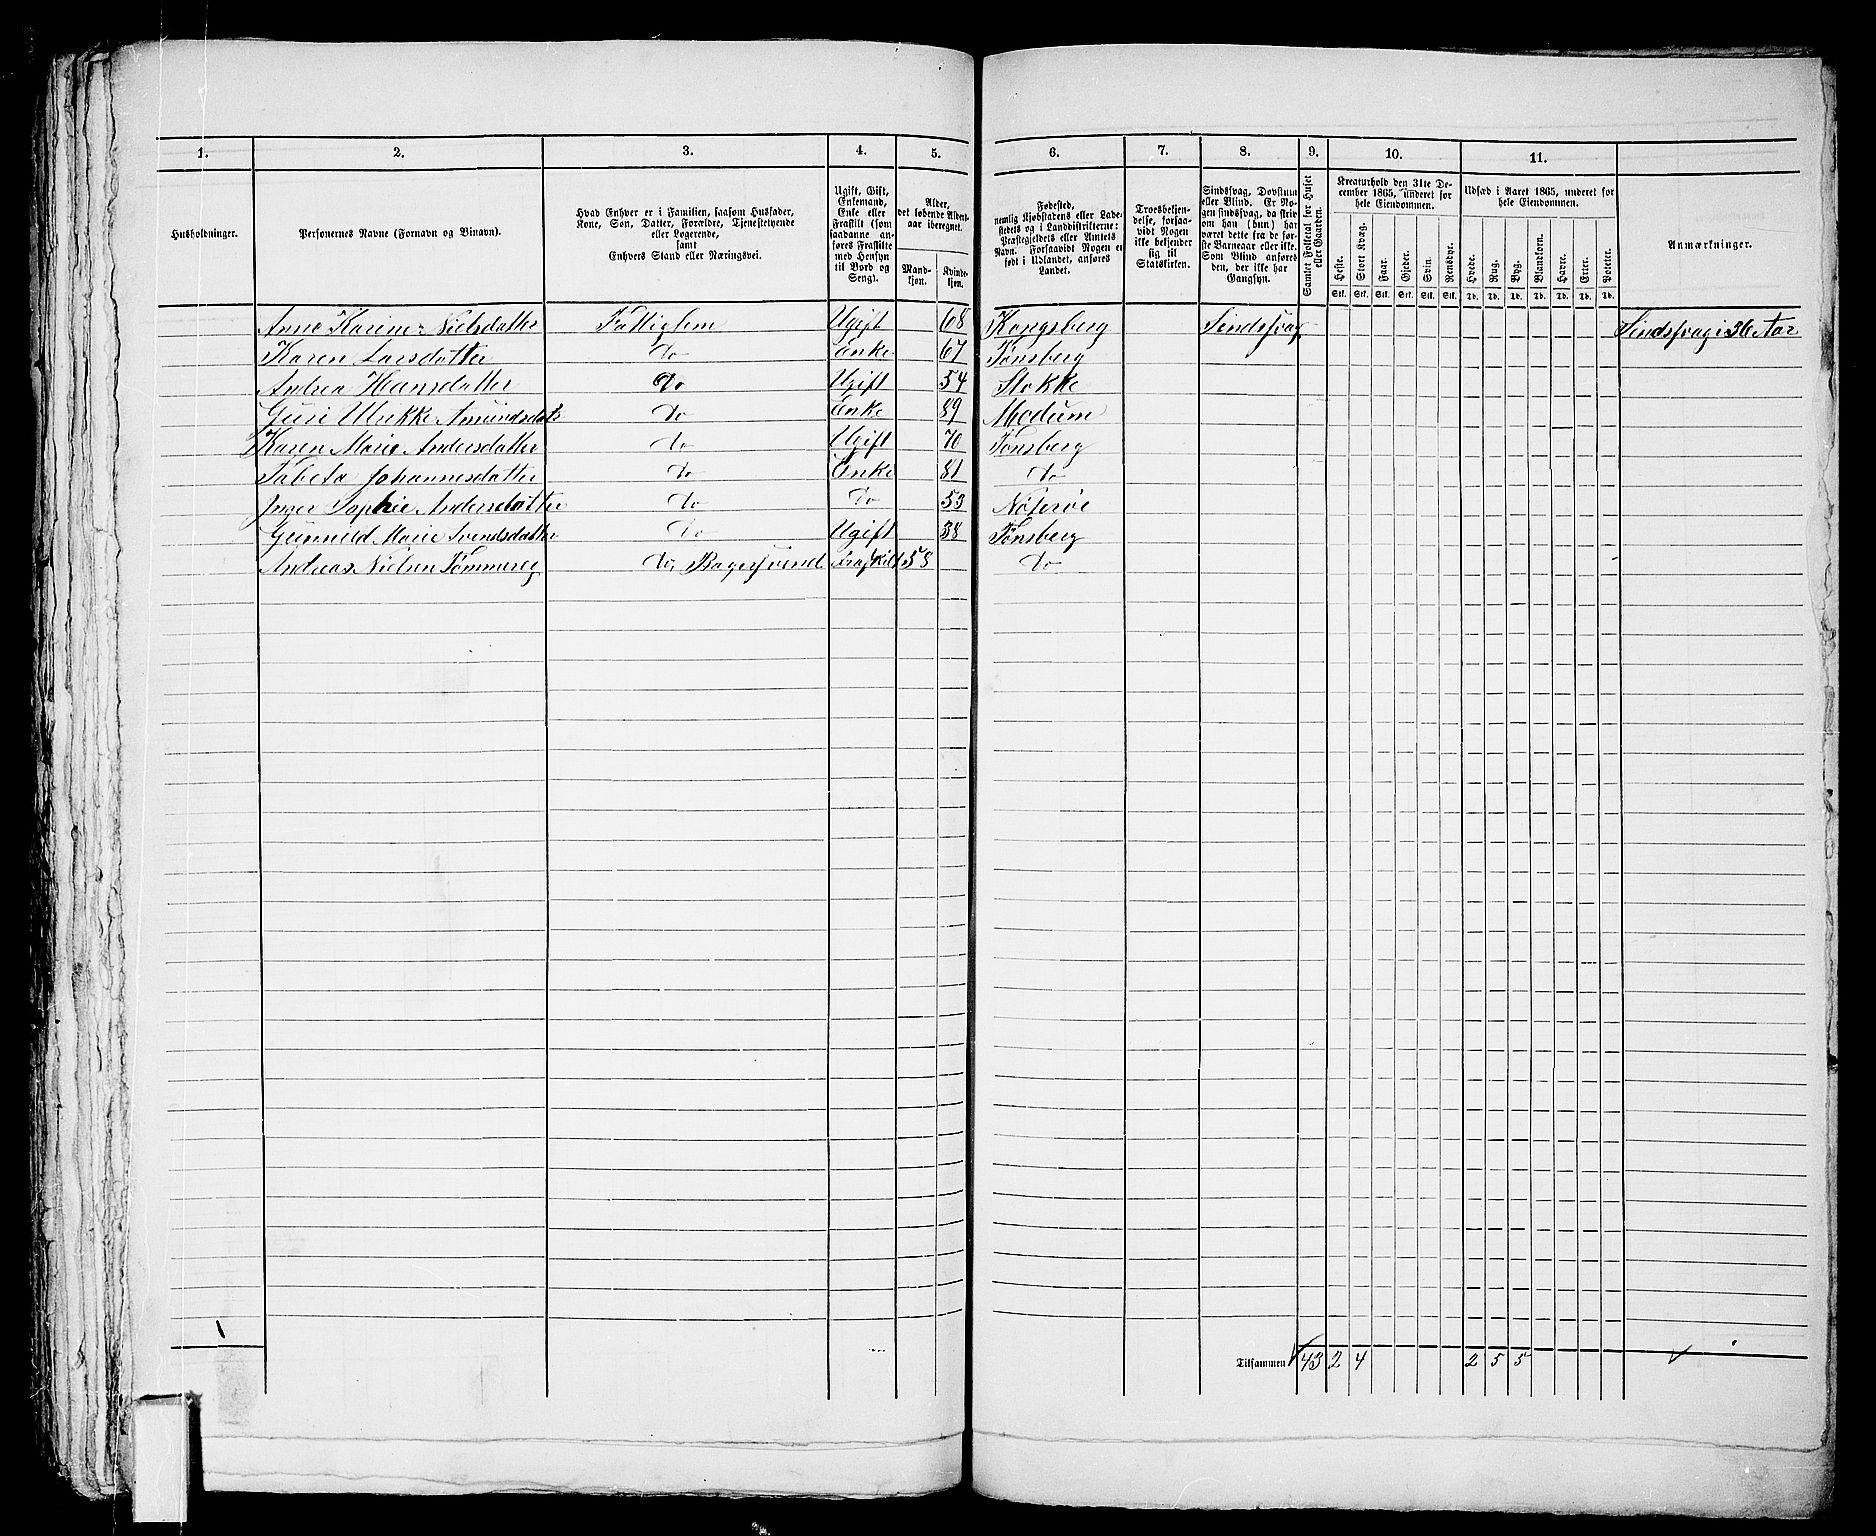 1. 2. 3. 4. 5. 6. 7. 8. 9. 10. 11.
Husholdninger.
Personernes Navne (Fornavn og Binavn).
Hvad Enhver er i Familien, saasom Husfader,
Kone, Søn, Datter, Forældre, Tjenestetyende
eller Logerende,
samt
Enhvers Stand eller Næringsvei.
Ugift, Gift,
Enkemand,
Enke eller
Fraskilt (som
saadanne an-
føres Fraskilte
med Hensyn
til Bord og
Seng).
Alder,
det løbende Alders-
aar iberegnet.
Mand-
kjøn.
Kvinde-
kjøn.
Fødested,
nemlig Kjøbstadens eller Lade-
stedets og i Landdistrikterne:
Præstegjeldets eller Amtets
Navn. Forsaavidt Nogen er
født i Udlandet, anføres
Landet.
Troesbekjen-
delse, forsaa-
vidt Nogen
ikke bekjender
sig til
Statskirken.
Sindssvag, Døvstum
eller Blind. Er No-
gen sindssvag, da skriv
om han (hun) har
været dette fra de før-
ste Barneaar eller ikke.
Som Blind anføres
den, der ikke har
Gangsyn.
Samlet Folketal for Huset
eller Gaarden.
Kreaturhold den 31te De-
cember 1865, underet for
hele Eiendommen.
Heste. Stort Kvæg. Faar. Gjeder. Svin. Rensdyr.
Stk. Stk. Stk. Stk. Stk. Stk.
Udsæd i Aaret 1865, underet for
hele Eiendommen.
Hvede. Rug. Byg. Blandkorn. Havre. Erter. Poteter.
Td. Td. Td. Td. Td. Td. Td.
Anmærkninger.
Anne Karine Nielsdatter Fattiglem Ugift 68 Kongsberg Sindssvag Sindssvag i 36 Aar
Karen Larsdatter Do Enke 67 Tønsberg
Andrea Hansdatter Do Ugift 54 Stokke
Guri Ulrikke Amundsdatr Do Enke 89 Modum
Karen Marie Andersdatter Do Ugift 70 Tønsberg
Tabeta Johannesdatter Do Enke 81 Do
Inger Sophie Andersdatter Do Do 53 Nøterøe
Gunnild Marie Svendsdatter Do Ugift 38 Tønsberg
Andreas Nielsen Tømmereg Do, Bagersvend Fraskilt 58 Do
Tilsammen 43 2 4 2 5 5